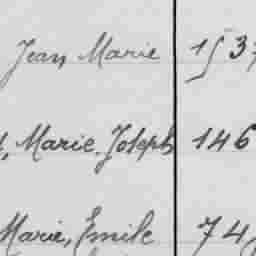 Jean Marie 1537
Marie, Joseph 146
Marie, Emile 74